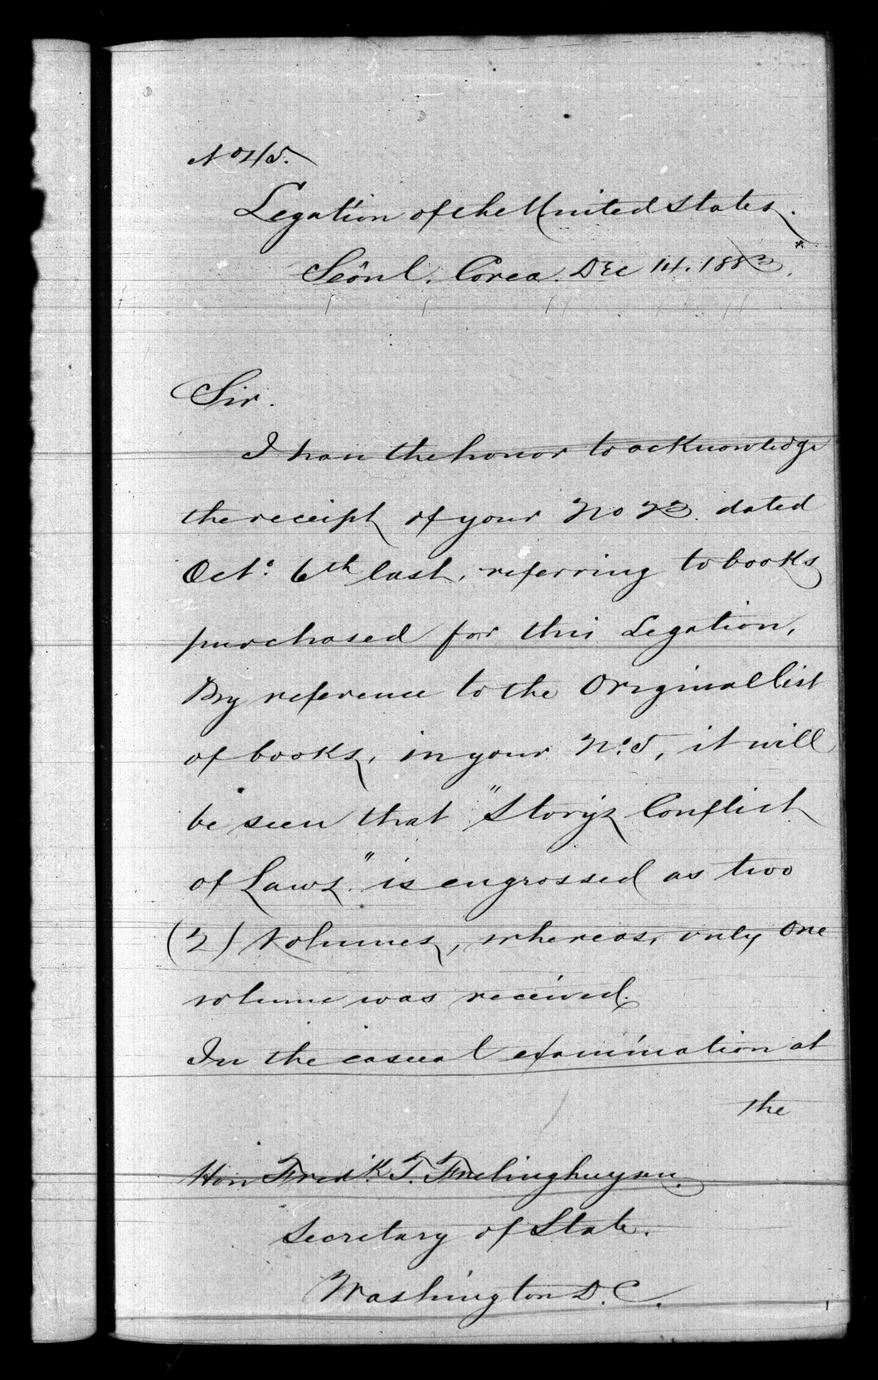 No 45.
Legation of the United States.
Seôul. Corea. Dec 14. 1883.
Sir.
I have the honor to acknowledge
the receipt of your No 23. dated
Oct: 6th last, referring to books
purchased for this Legation,
By reference to the Original list
of books, in your No. 5, it will
be seen that "Story's Conflict
of Laws," is engrossed as two
(2) Volumes, whereas, only one
volume was received.
In the casual examination at
the
Hon Fredk. T. Frelinghuysen.
Secretary of State.
Washington D.C.